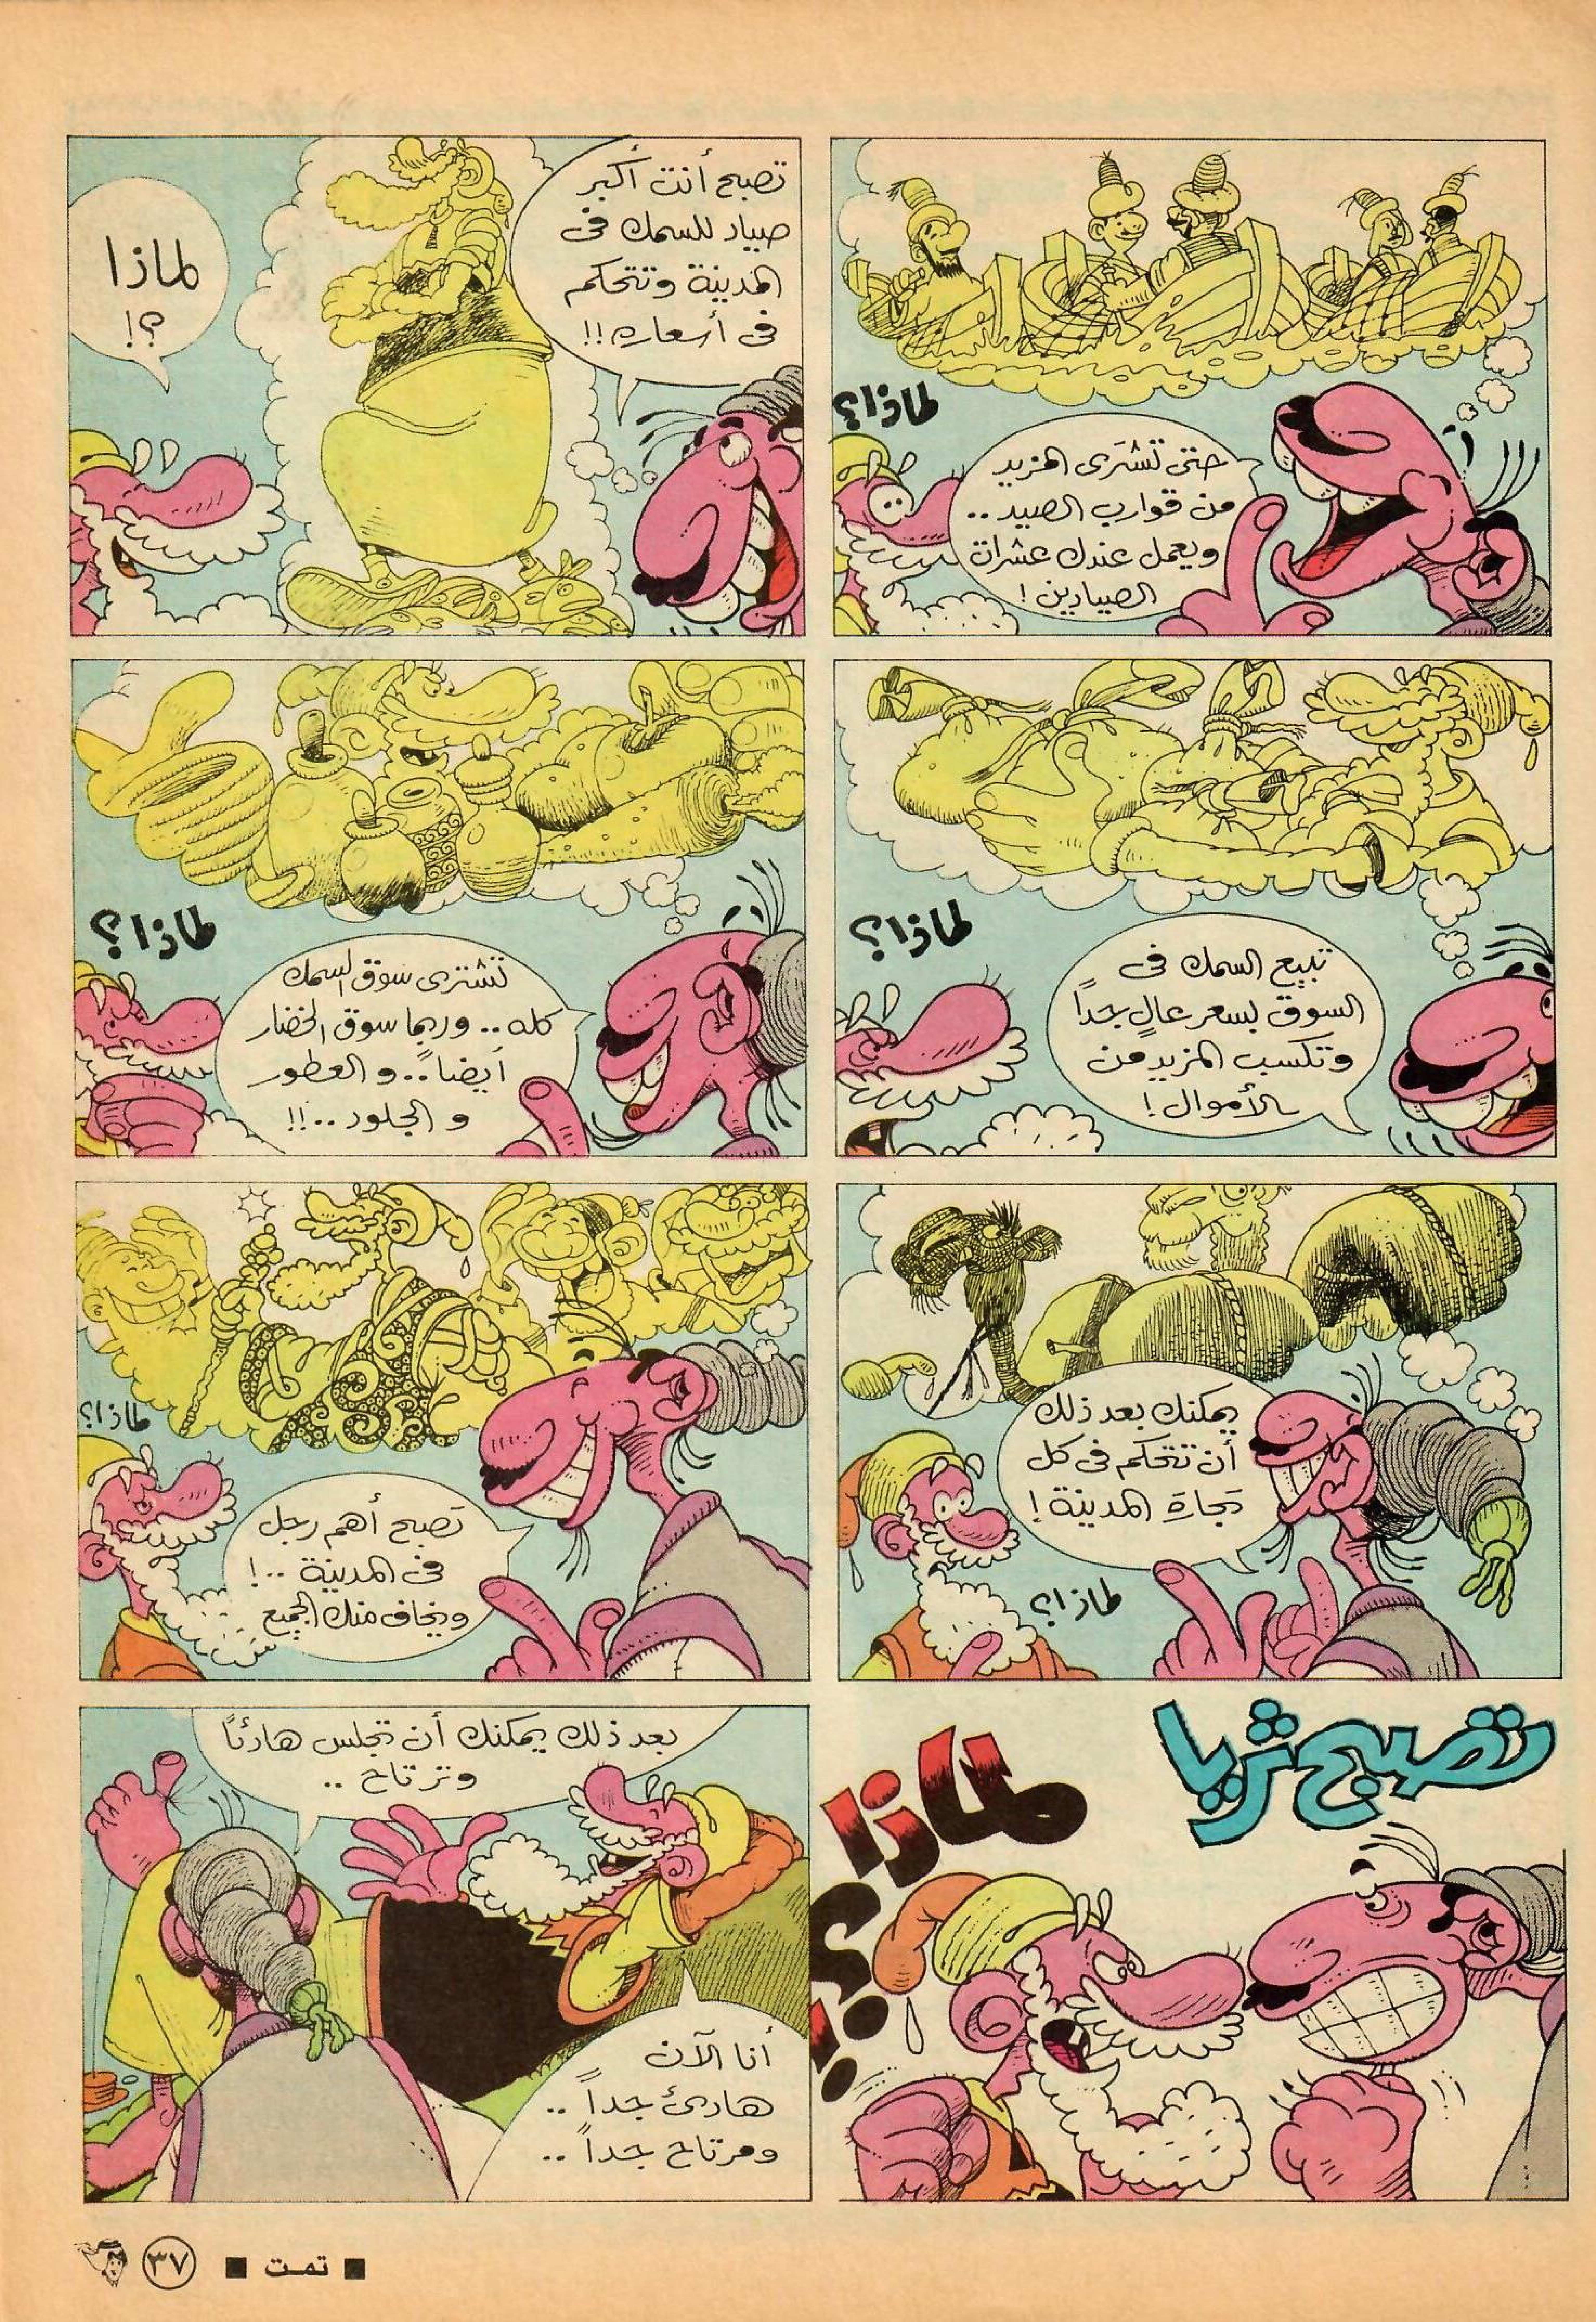 لماذا؟
حتى تشترى المزيد
من قوارب الصيد ..
ويعمل عندك عشرات
الصيادين !
تصبح أنت أكبر
صياد للسمك فى
المدينة وتتحكم
فى أسعاره !!
لماذا
؟!
تبيع السمك فى
السوق بسعر عالٍ جداً
وتكسب المزيد من
الأموال !
لماذا؟
تشترى سوق السمك
كله .. وربما سوق الخضار
أيضاً .. و العطور
و الجلود ..!!
لماذا؟
يمكنك بعد ذلك
أن تتحكم فى كل
تجارة المدينة !
لماذا؟
تصبح أهم رجل
فى المدينة ..!
ويخاف منك الجميع
لماذا؟
تصبح ثريا
لماذا
؟!
بعد ذلك يمكنك أن تجلس هادئاً
وترتاح ..
أنا الآن
هادئ جداً ..
ومرتاح جداً ..
■ تمت ■
٣٧